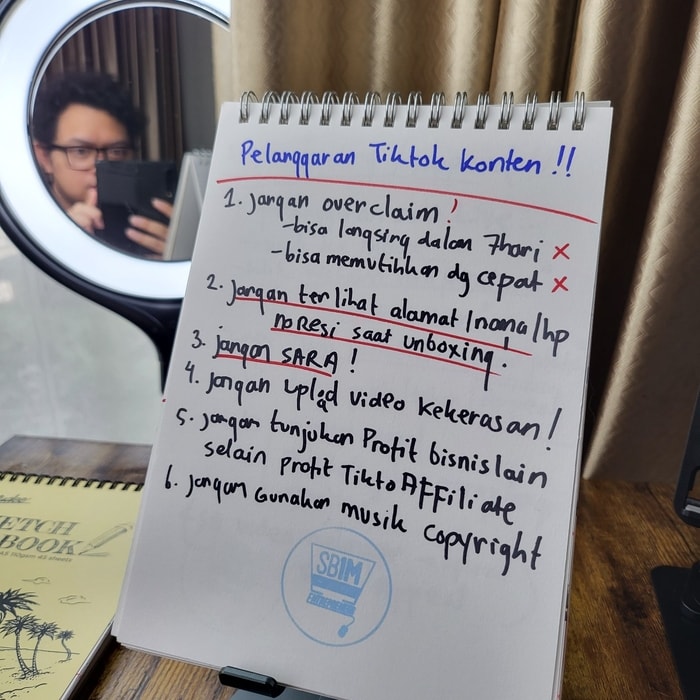 Pelanggaran Tiktok Konten !!
1. Jangan overclaim !
-bisa langsing dalam 7hari x
-bisa memutihkan dg cepat x
2. Jangan terlihat alamat/nama/hp
noResi saat unboxing.
3. Jangan SARA !
4. Jangan upload video kekerasan !
5. Jangan tunjukan Profit bisnis lain
selain profit Tikto AFFiliate
6. Jangan Gunakan musik copyright
SB1M
ETCH
BOOK